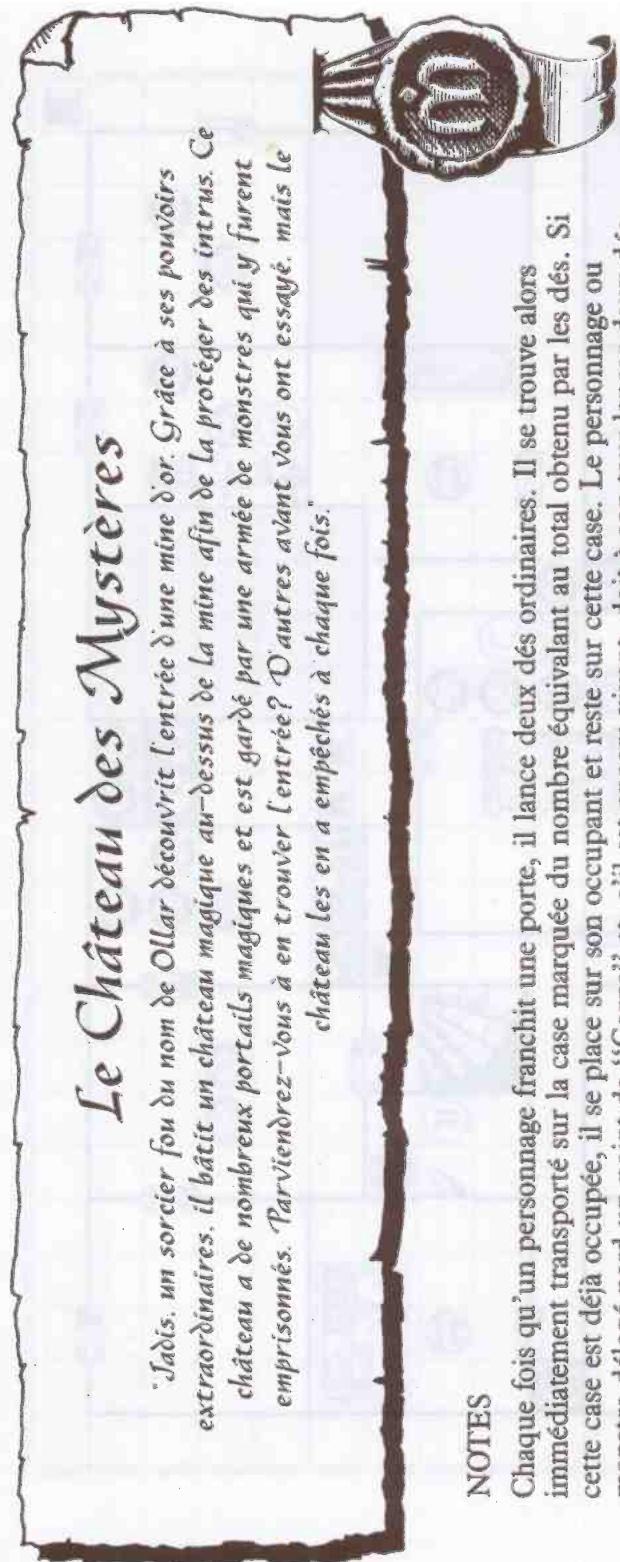 Le Château des Mystères
"Jadis, un sorcier fou du nom de Ollar découvrit l'entrée d'une mine d'or. Grâce à ses pouvoirs
extraordinaires, il bâtit un château magique au-dessus de la mine afin de la protéger des intrus. Ce
château a de nombreux portails magiques et est gardé par une armée de monstres qui y furent
emprisonnés. Parviendrez-vous à en trouver l'entrée? D'autres avant vous ont essayé, mais le
château les en a empêchés à chaque fois."
NOTES
Chaque fois qu'un personnage franchit une porte, il lance deux dés ordinaires. Il se trouve alors
immédiatement transporté sur la case marquée du nombre équivalant au total obtenu par les dés. Si
cette case est déjà occupée, il se place sur son occupant et reste sur cette case. Le personnage ou
monstre délogé perd un point de "Corps"